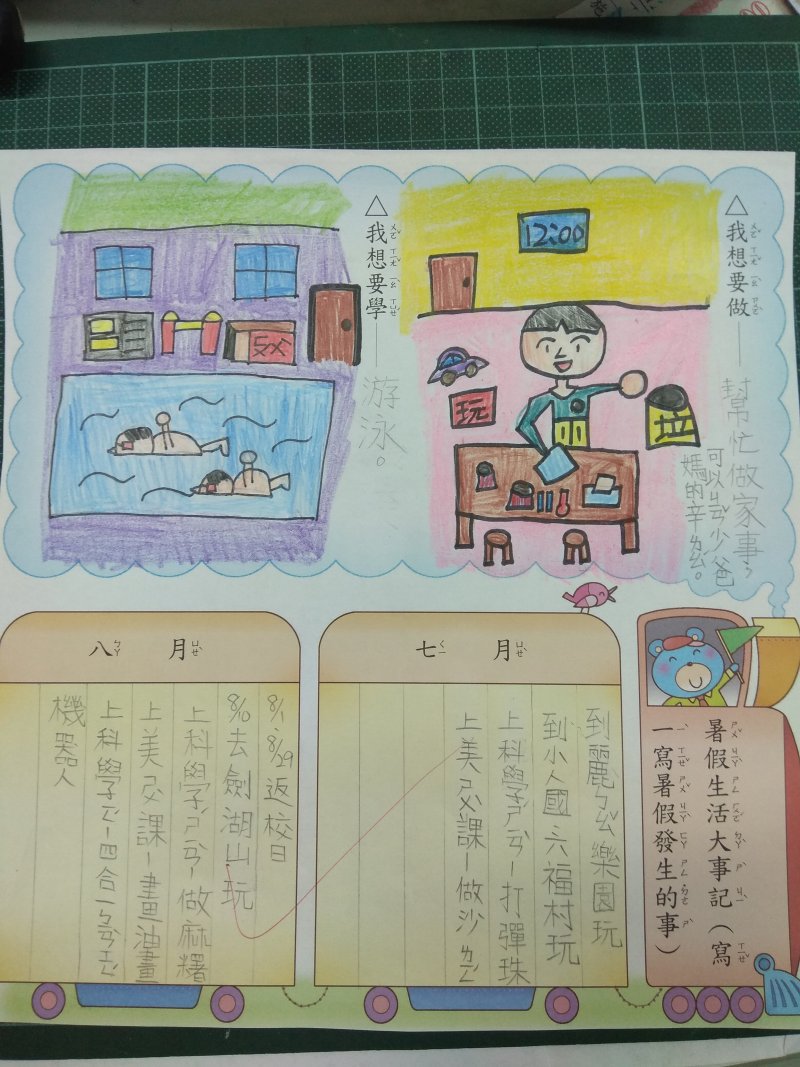 △我想要做——幫忙做家事,
可以ㄐㄧㄢˇ少爸
媽的辛ㄌㄠˊ。
12:00
玩
垃
△我想要學——游泳。
暑假生活大事記(寫
一寫暑假發生的事)
七月
到麗ㄅㄠˇ樂園玩
到小人國六福村玩
上科學ㄕˊㄢ—打彈珠
上美ㄕㄨˋ課—做沙
八月
8/1、8/29返校日
8/10去劍湖山玩
上科學ㄕˊㄢ—做麻糬
上美ㄕㄨˋ課—畫油畫
上科學
機器人